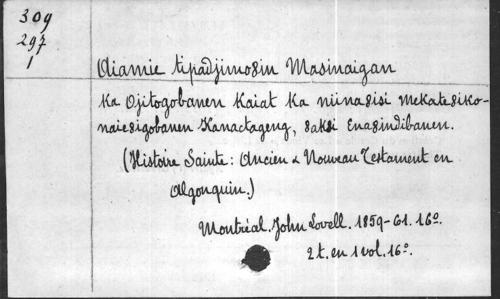 309
297
1
Aiamie tipadjimo8in Masinaigan
ka Ojitogobanen kaiat ka niina8isi mekate8iko-
naie8igobanen Kanactageng, 8ak8i Ena8indibanen.
(Histoire Sainte: Ancien & Nouveau Testament en
Algonquin.)
Montréal. John Lovell. 1859-61. 16º.
2 t. en 1 vol. 16º.